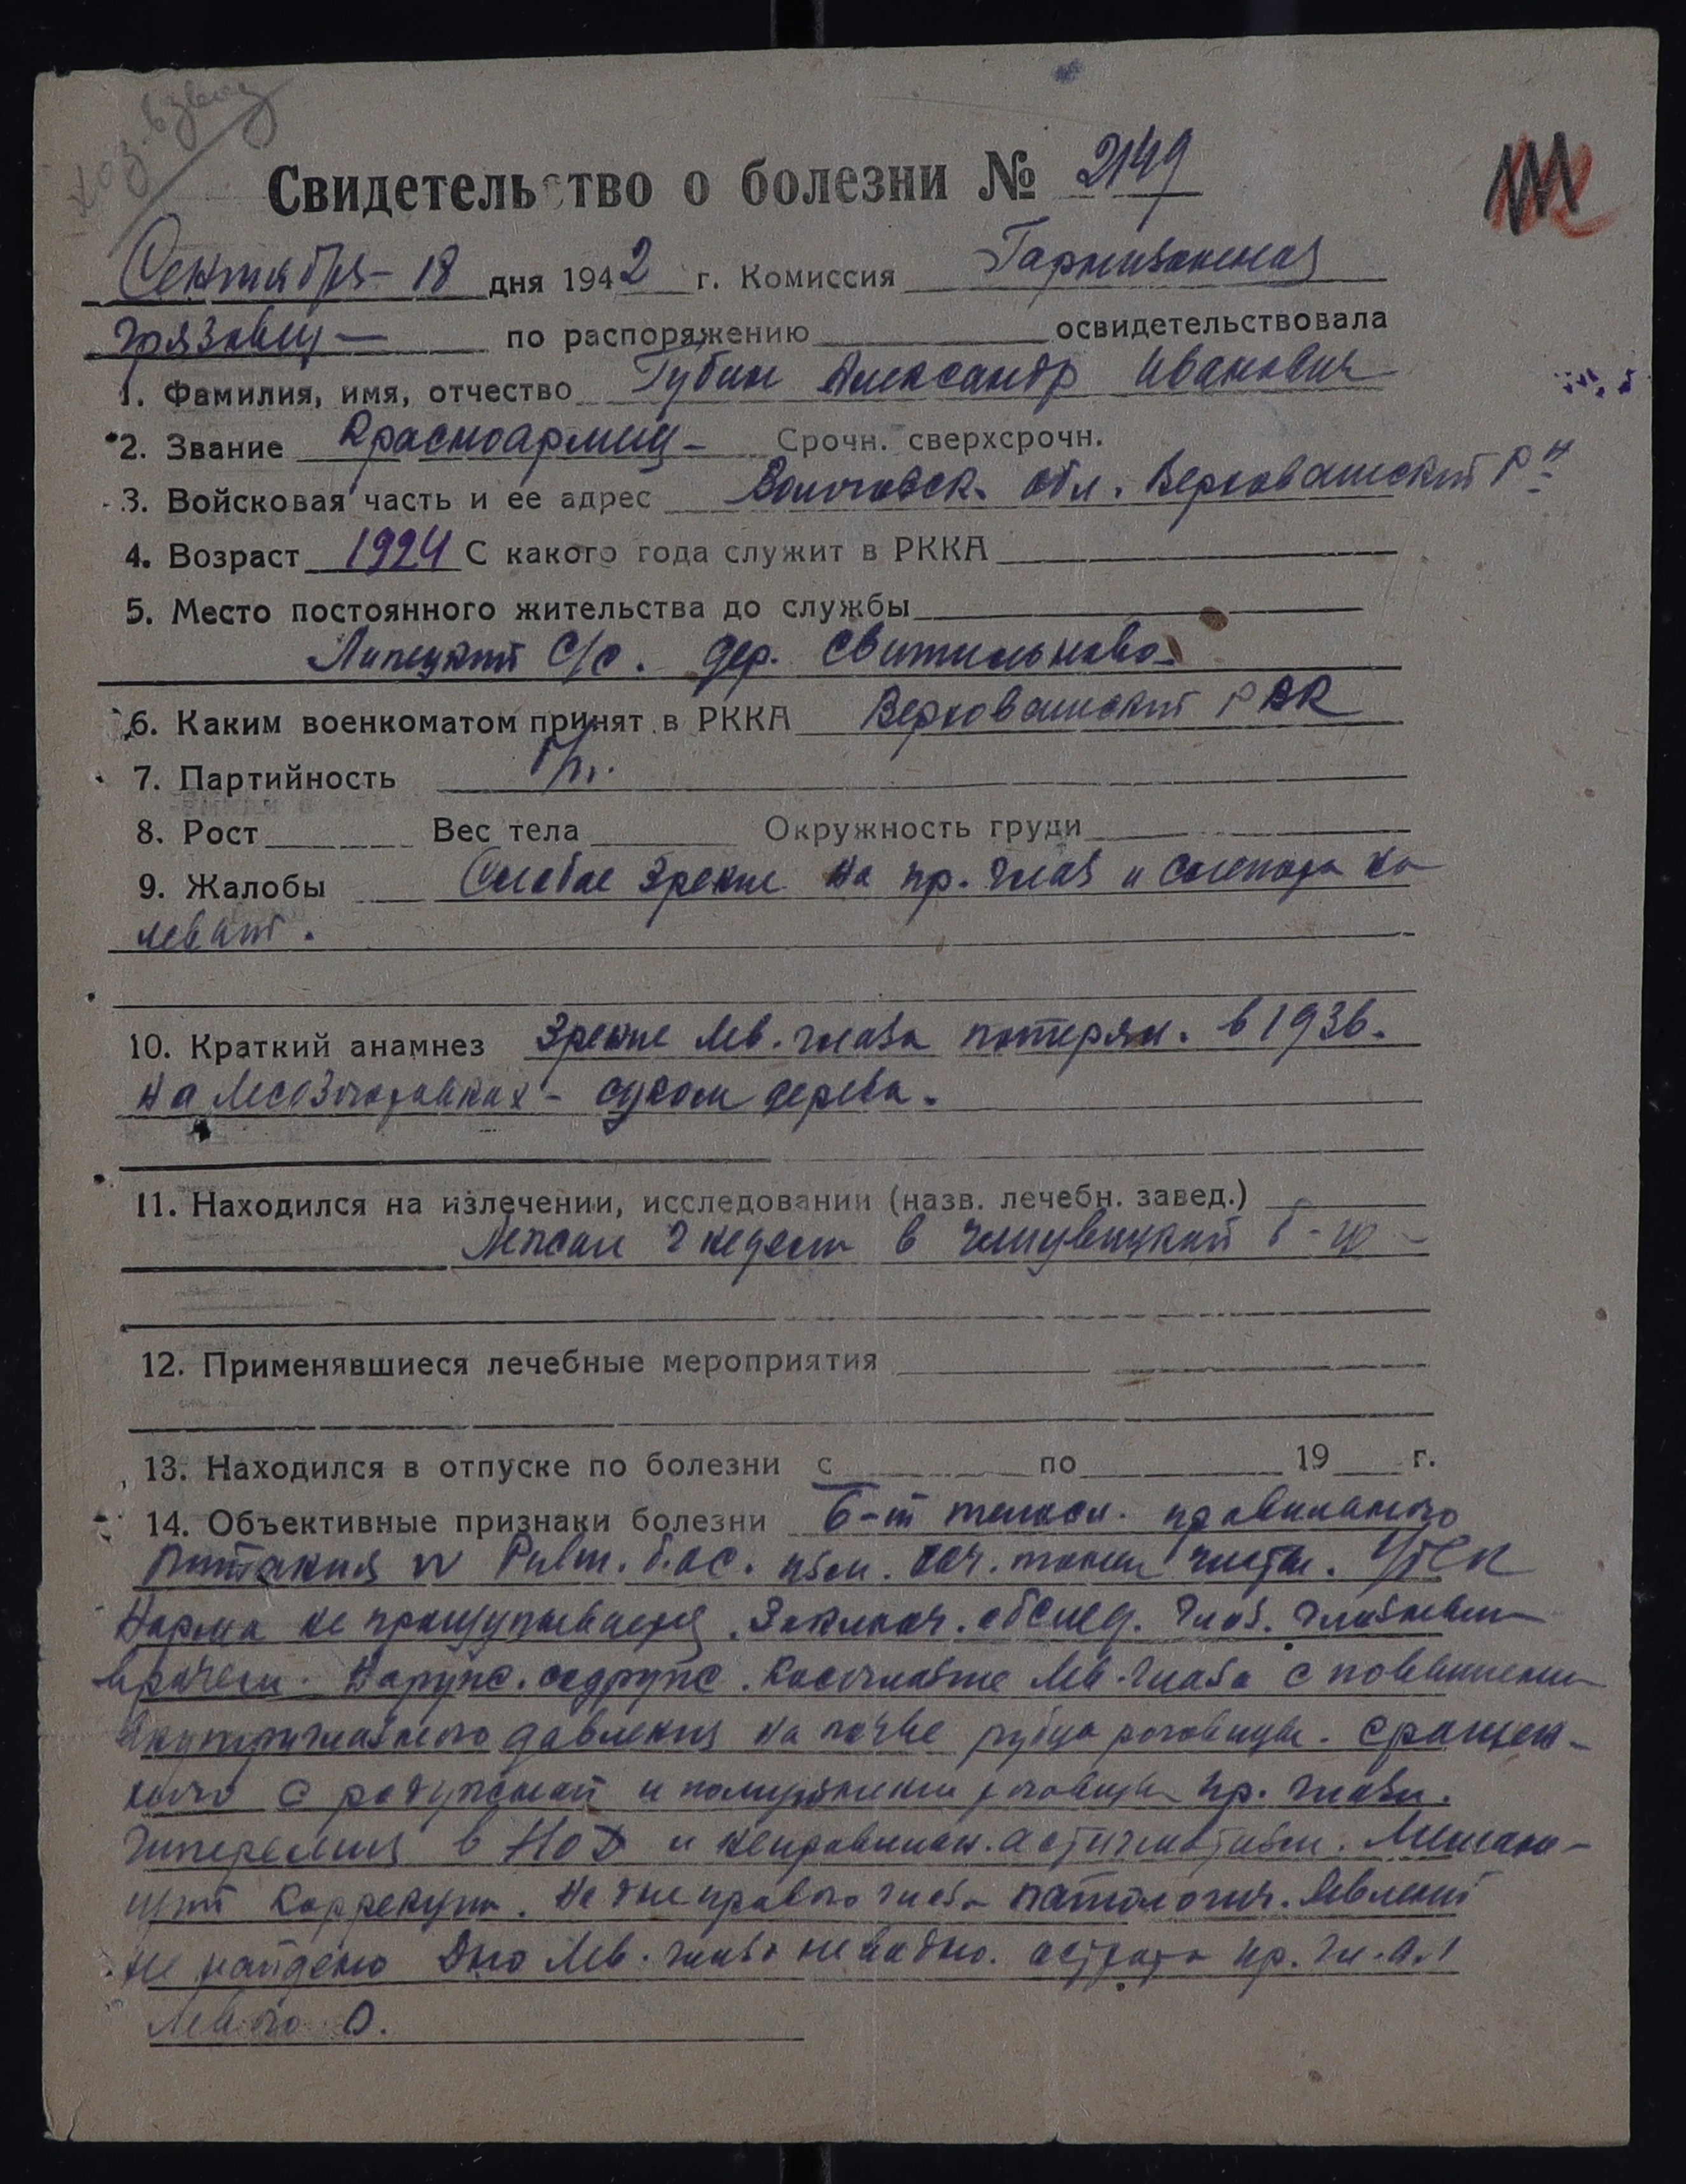 Хоз. взвод
Свидетельство о болезни № 2149
Сентября - 18 дня 1942 г. Комиссия Гарнизонная
Грязовец — по распоряжению освидетельствовала
1. Фамилия, имя, отчество Губин Александр Иванович
2. Звание Красноармеец - Срочн. сверхсрочн.
3. Войсковая часть и ее адрес Вологодск. обл. Верховажский Р-н
4. Возраст 1924 С какого года служит в РККА
5. Место постоянного жительства до службы
Липецкий С/с. дер. Светильново
6. Каким военкоматом принят в РККА Верховажский РВК
7. Партийность б/п.
8. Рост Вес тела Окружность груди
9. Жалобы Слабое зрение на пр. глаз и слепота на
левый.
10. Краткий анамнез Зрение лев. глаза потерял. в 1936.
на лесозаготовках - суком дерева.
11. Находился на излечении, исследовании (назв. лечебн. завед.)
Лежал 2 недели в б-це
12. Применявшиеся лечебные мероприятия
13. Находился в отпуске по болезни с по 19 г.
14. Объективные признаки болезни б-й телосл. правильного
питания N Pulm. б.ос. изм. тоны чисты.
Норма не прощупывается. Заключ. обслед. глаз. глазным
врачем. Наружн. содруж. косоглазие лев. глаза с повышением
внутриглазного давления на почве рубца роговицы. сращен-
ного с радужкой и помутнения роговицы пр. глаза.
Гиперемия в и неправильн. астигматизм.
коррекции. На дне правого глаза патологич. явлений
не найдено Дно лев. глаза не видно. острота пр. гл. 0.1
левого 0.